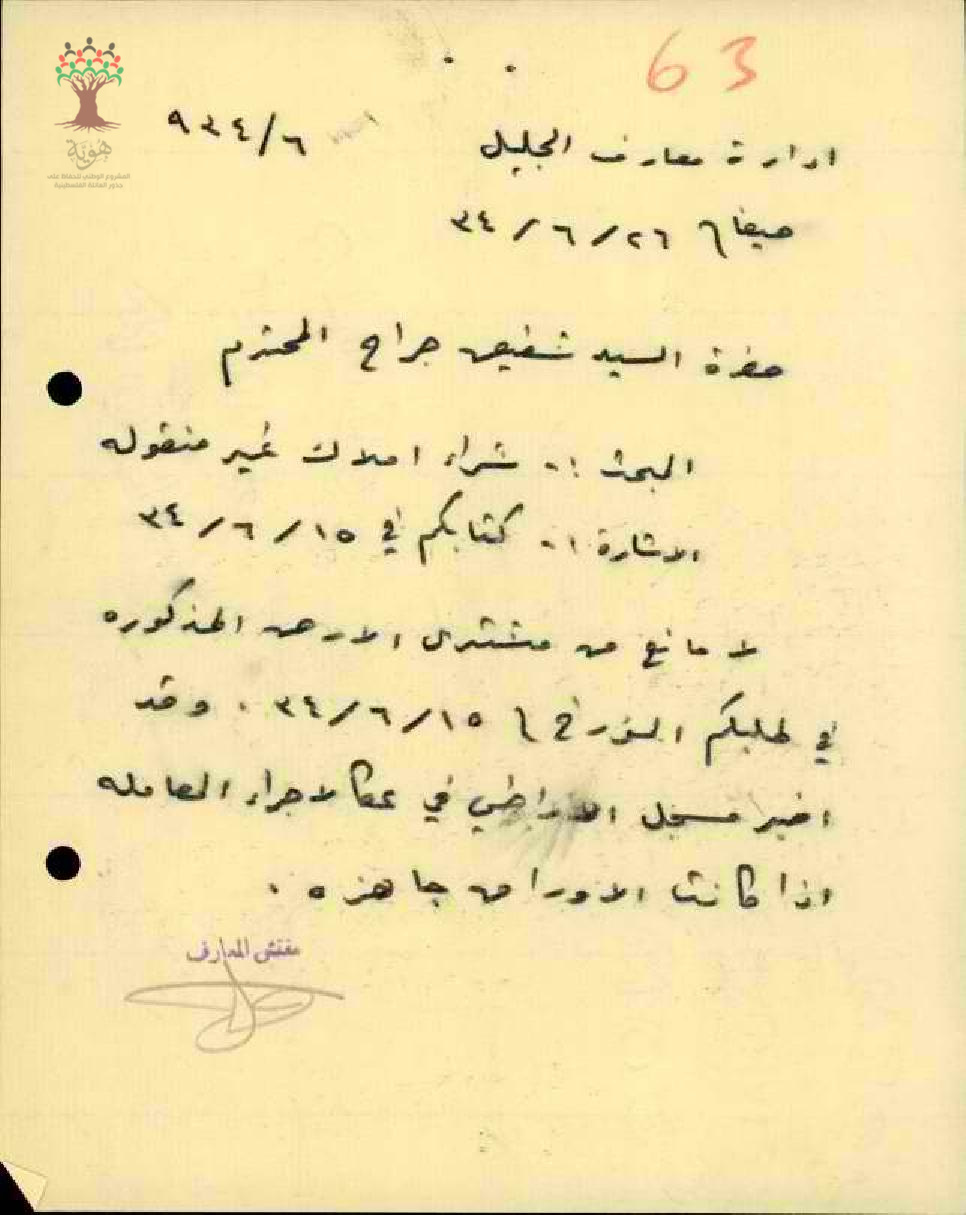 63
هوية
المشروع الوطني للحفاظ على
جذور العائلة الفلسطينية
ادارة معارف الجليل ٦/٩٣٤
حيفا ٢٦/٦/٣٤
حضرة السيد شفيق جراح المحترم
البحث :- شراء املاك غير منقوله
الاشارة :- كتابكم في ١٥/٦/٣٤
لا مانع من مشترى الارض المذكوره
في طلبكم المؤرخ ١٥/٦/٣٤ . وقد
اخبر مسجل الاراضي في عكا لاجراء المعامله
اذا كانت الاوراق جاهزه .
مفتش المعارف